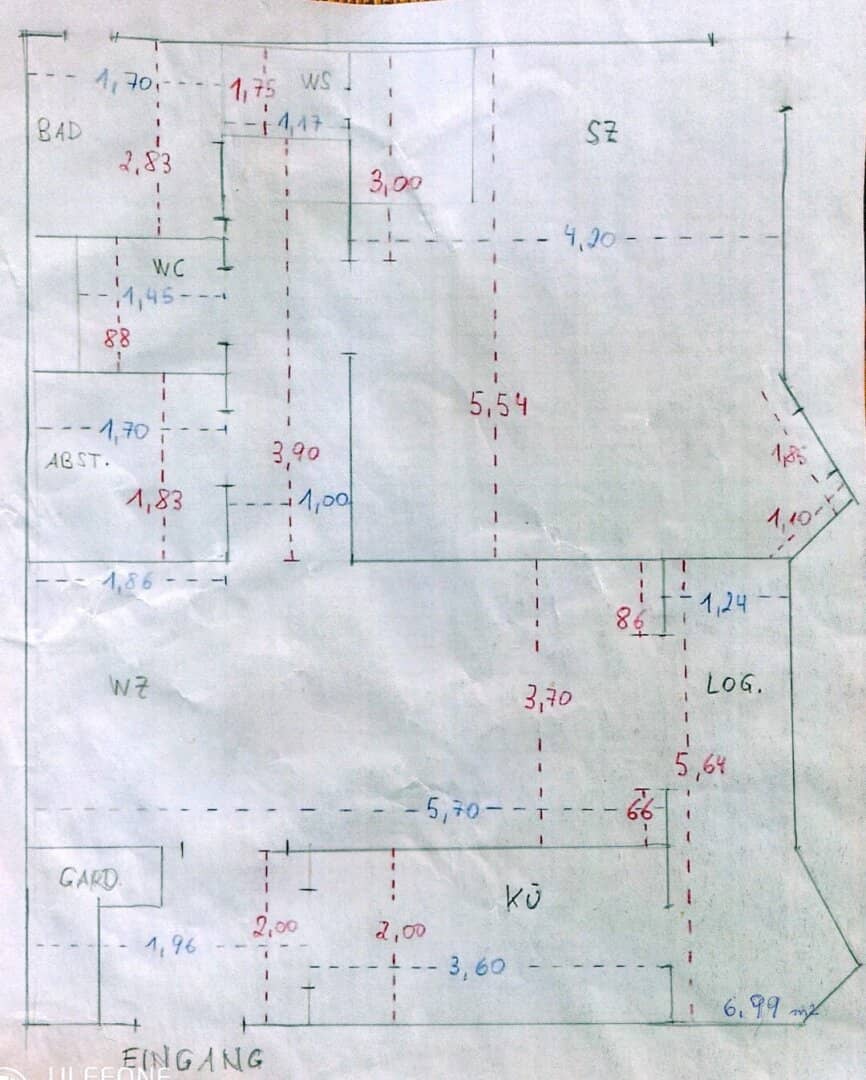 1,70
1,75
WS
BAD
1,17
SZ
2,83
3,00
4,20
WC
1,45
88
5,54
1,70
3,90
1,85
ABST.
1,83
1,00
1,10
1,86
1,24
86
WZ
LOG.
3,70
5,64
5,70
66
GARD.
KÜ
2,00
2,00
1,96
3,60
6,99 m²
EINGANG
ULEFONE